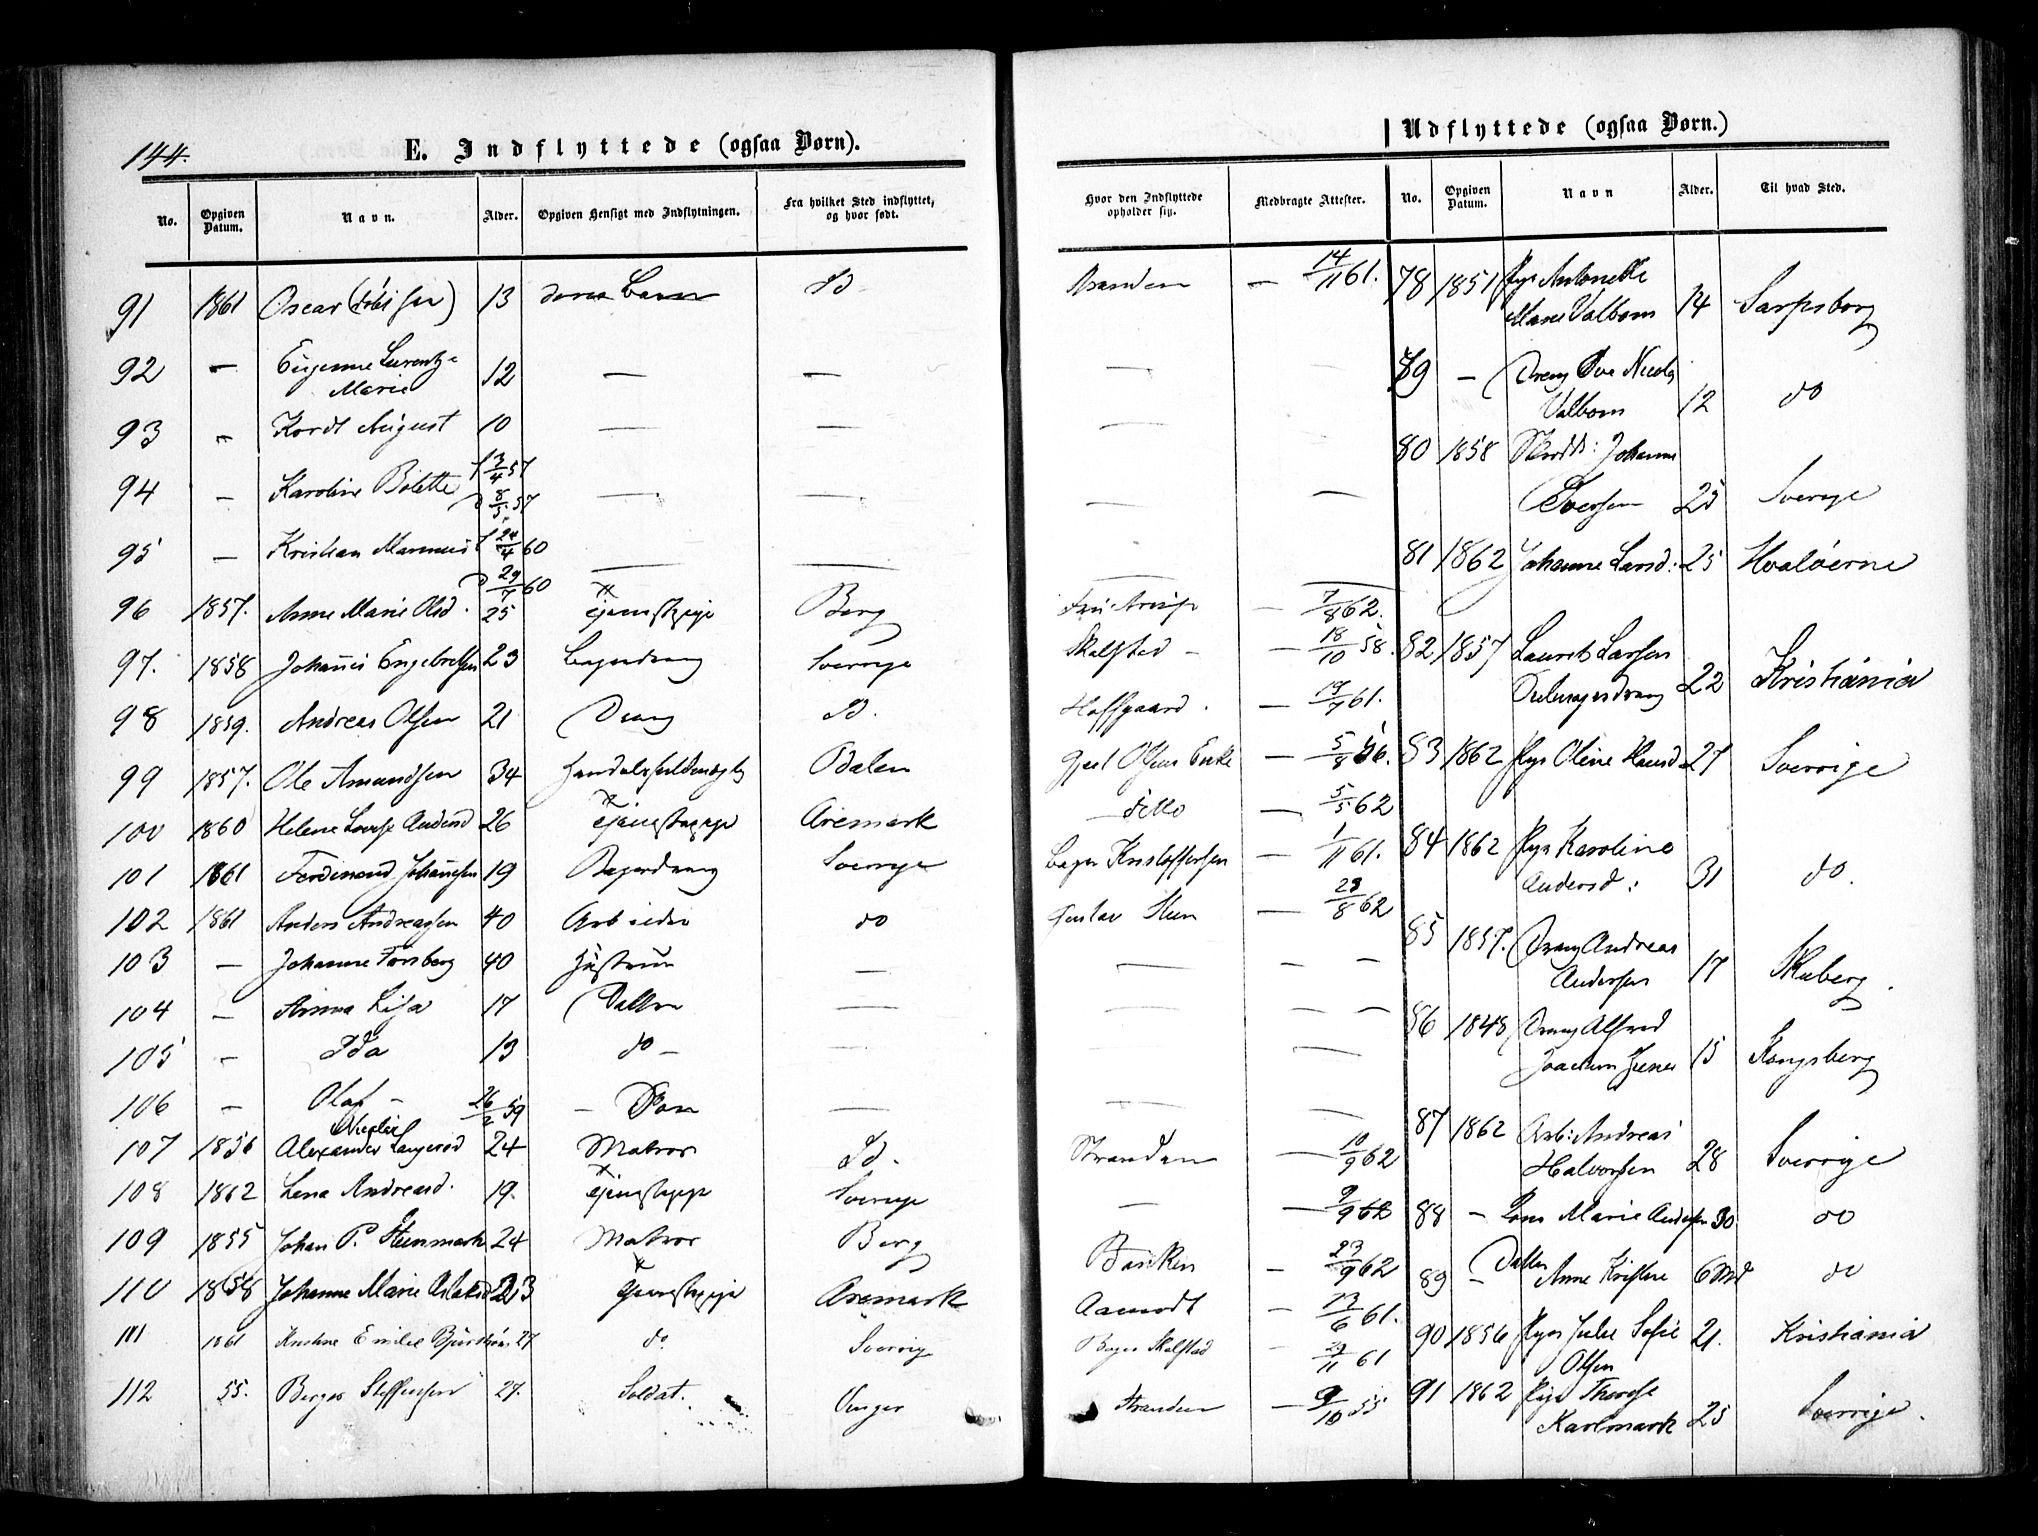 144.
E. Indflyttede (ogsaa Børn).
No. Opgiven Datum. Navn. Alder. Opgiven Hensigt med Indflytningen. Fra hvilket Sted indflyttet, og hvor født.
91 1861 Oscar 13 deres Børn Id
92 - Eugenie Laurentze Marie 12 - -
93 - Kordt August 10 - -
94 - Karoline Bolette f 3/4 57 d 8/5 57 - -
95 - Kristian Marinius f 24/4 60 d 29/7 60 - -
96 1857. Anne Marie Olsd. 25 Tjenestepige Berg
97. 1858 Johannes Engebretsen 23 Bagerdreng Sverrige
98 1859. Andreas Olsen 21 Dreng Id.
99 1857. Ole Amundsen 34 Handelsfuldmægtig Odalen
100 1860 Helene Lovise Andersd 26 Tjenestepige Aremark
101 1861 Ferdinand Johannesen 19 Bagerdreng Sverrige
102 1861 Anders Andreassen 40 Arbeider do
103 - Johanne Forsberg 40 Hustru -
104 - Anna Lisa 17 Datter -
105 - Ida 13 do - -
106 - Olaf - 26/2 59 - Søn -
107 1856 Alexander Nicolai Langerød 24 Matros Id.
108 1862 Lena Andreasd. 19. Tjenestepige Sverrige
109 1855 Johan P. Steenmark 24 Matros Berg
110 1858 Johanne Marie Aslaksd 23 Tjenestepige Aremark
111 1861 Emilie 27 do Sverrig
112 55. Berger Steffensen 27. Soldat. Onsøe
Udflyttede (ogsaa Børn.)
Hvor den Indflyttede opholder sig. Medbragte Attester. No. Opgiven Datum. Navn Alder. Til hvad Sted.
Stranden - 14/11 61.
- -
- -
- -
-
- 7/8 62.
Skalsted - - 18/10 58.
Hoffgaard. - 19/7 61.
Olsens Enke - 5/8 56.
ditto - 5/5 62
Bager Kristoffersen - 1/11 61.
Gustav Steen - 29/8 62
- - -
- - -
- -
- -
Stranden - 10/9 62
- - 9/9 62
Banken - 23/9 62
Aamodt - 13/6 61.
Bager Skalstad - 29/11 61
Stranden - 9/10 55
78 1851 Pige Antonette
Marie Valbom 14 Sarpsborg
79 - Dreng Ove Nicolay
Valbom 12 do
80 1858 Johannes
Iversen 25 Sverige
81 1862 Johanne Larsd: 25 Hvaløerne
82 1857 Laurits Larsen
22 Kristiania
83 1862 Pige Oline Hansd 27 Sverrige
84 1862 Pige Karoline
Andersd: 31 do.
85 1857. Dreng Andreas
Andersen 17 Skeberg.
86 1848 Dreng Alfred
Joachim 15 Kongsberg
87 1862 Arb: Andreas
Halvorsen 28 Sverrige
88 - Kone Marie Andersen 30 do
89 - Datter
Anne Kristine 6 Md do
90 1856 Pige Julie Sofie
Olsen 21. Kristiania
91 1862 Pige Therese
Karlmark 25 Sverrige.